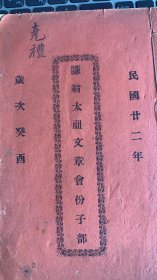 民國廿二年
謙翁太祖文章會份子部
歲次癸酉
堯禮